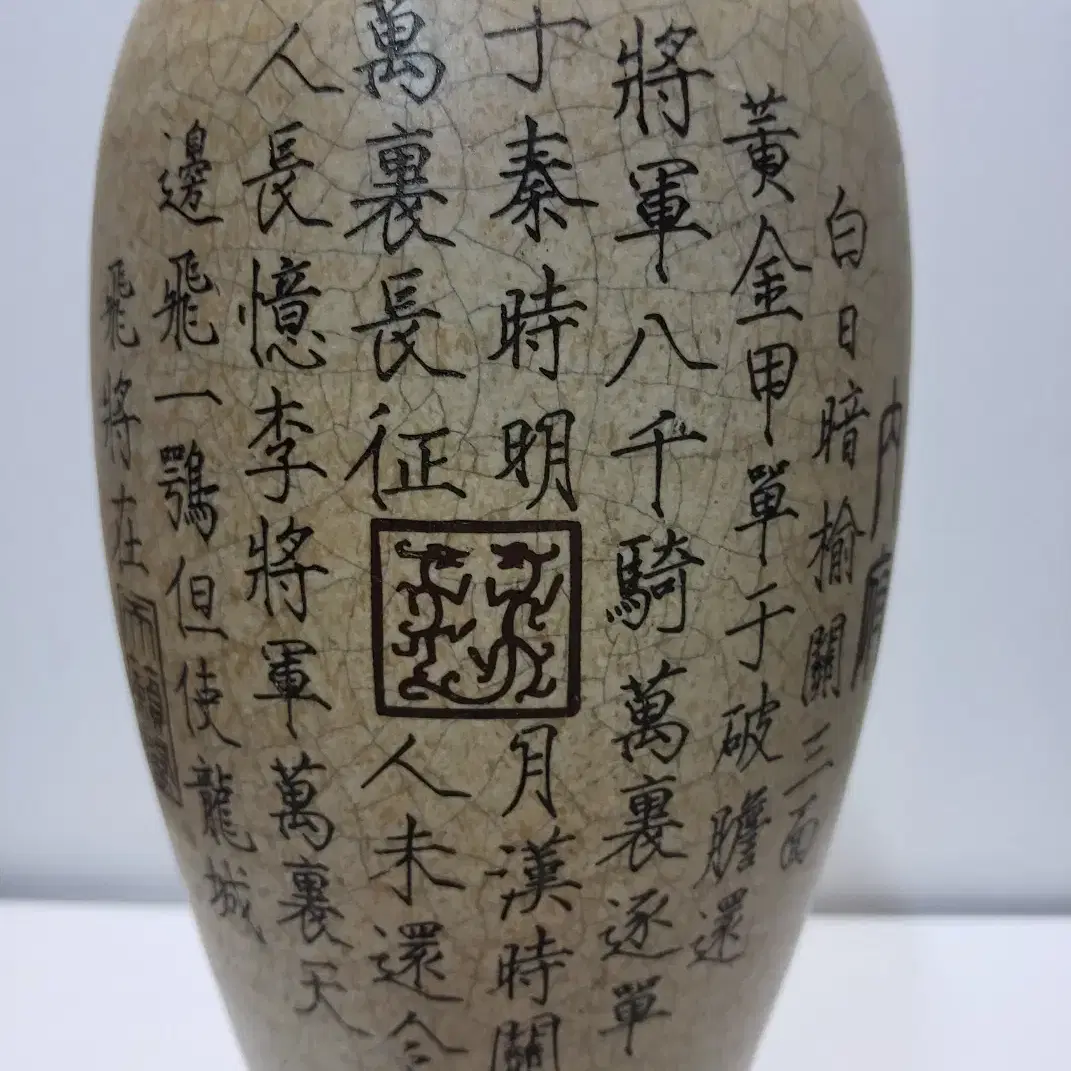 内府
白日暗榆關三面
黃金甲單于破膽還
將軍八千騎萬裏逐單
于秦時明月漢時關
萬裏長征人未還
人長憶李將軍萬裏天
邊飛一鶚但使龍城
飛將在